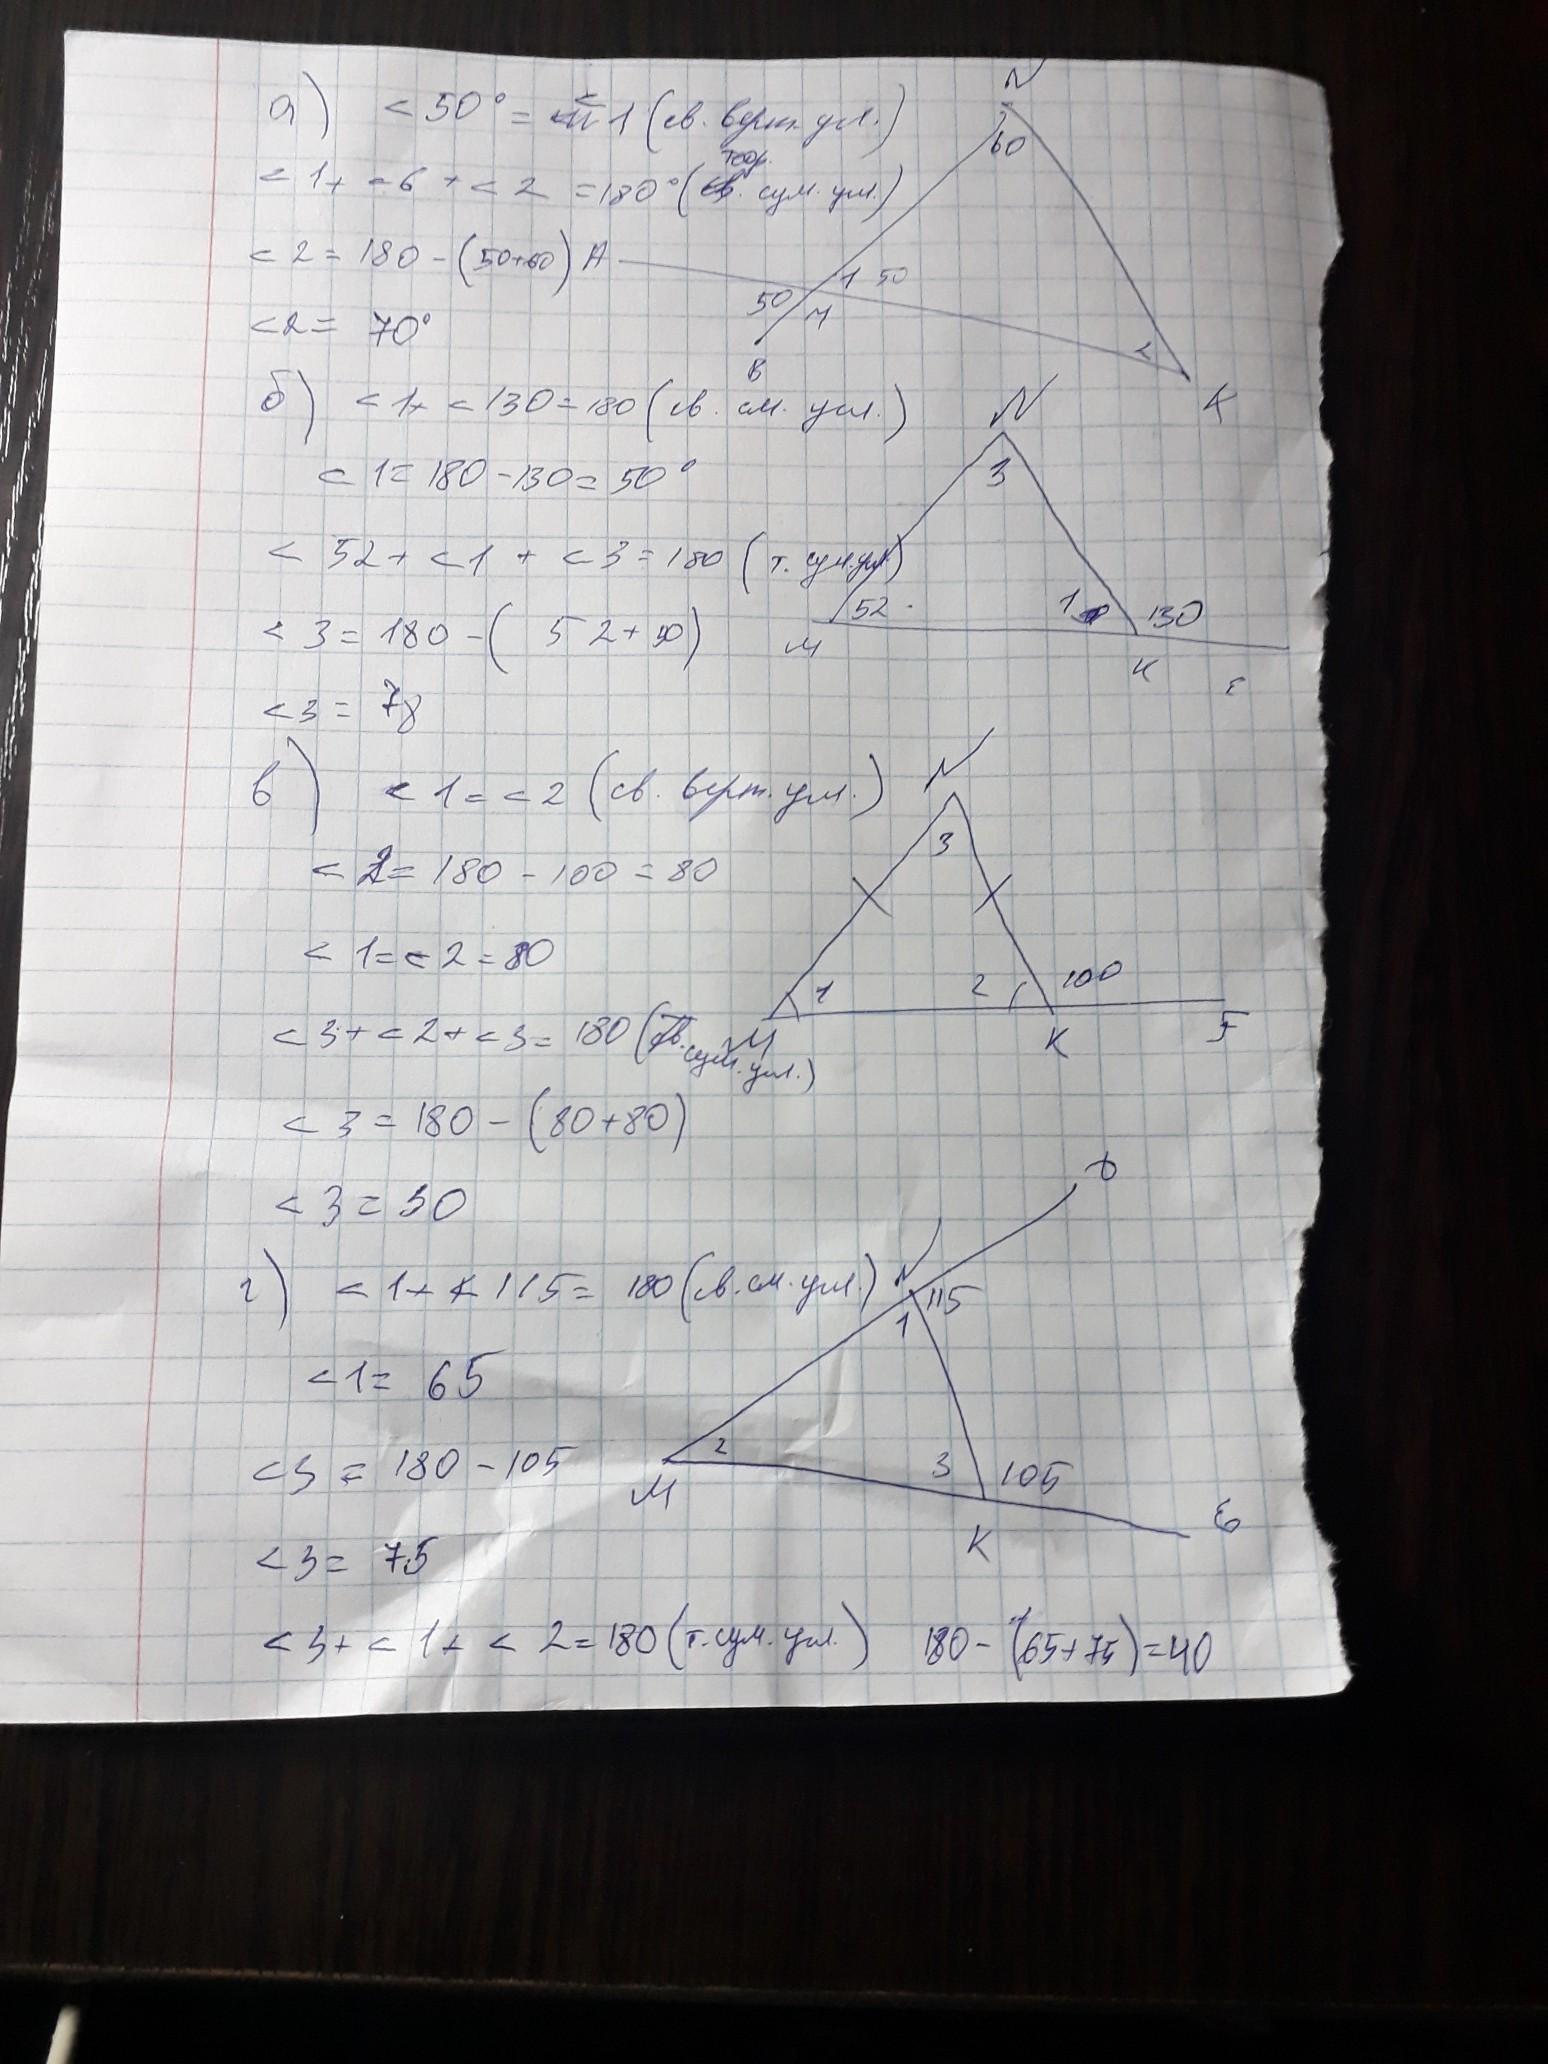 а) < 50° = < 1 (св. верт. угл.)
< 1 + < 6 + < 2 = 180° (теор. сум. угл.)
< 2 = 180 - (50+60)
< 2 = 70°
N
60
A
1 50
50
M
B
2
K
б) < 1 + < 130 = 180 (св. см. угл.)
< 1 = 180 - 130 = 50°
< 52 + < 1 + < 3 = 180 (т. сум. угл)
< 3 = 180 - ( 52 + 50)
< 3 = 78
N
3
52
1
130
M
K
E
в) < 1 = < 2 (св. верт. угл.)
< 2 = 180 - 100 = 80
< 1 = < 2 = 80
< 3 + < 2 + < 3 = 180 (т. сум. угл.)
< 3 = 180 - (80+80)
< 3 = 30
N
3
1
2
100
M
K
F
г) < 1 + < 115 = 180 (св. см. угл.)
< 1 = 65
< 3 = 180 - 105
< 3 = 75
< 3 + < 1 + < 2 = 180 (т. сум. угл.) 180 - (65+75) = 40
N
115
1
2
3
105
M
K